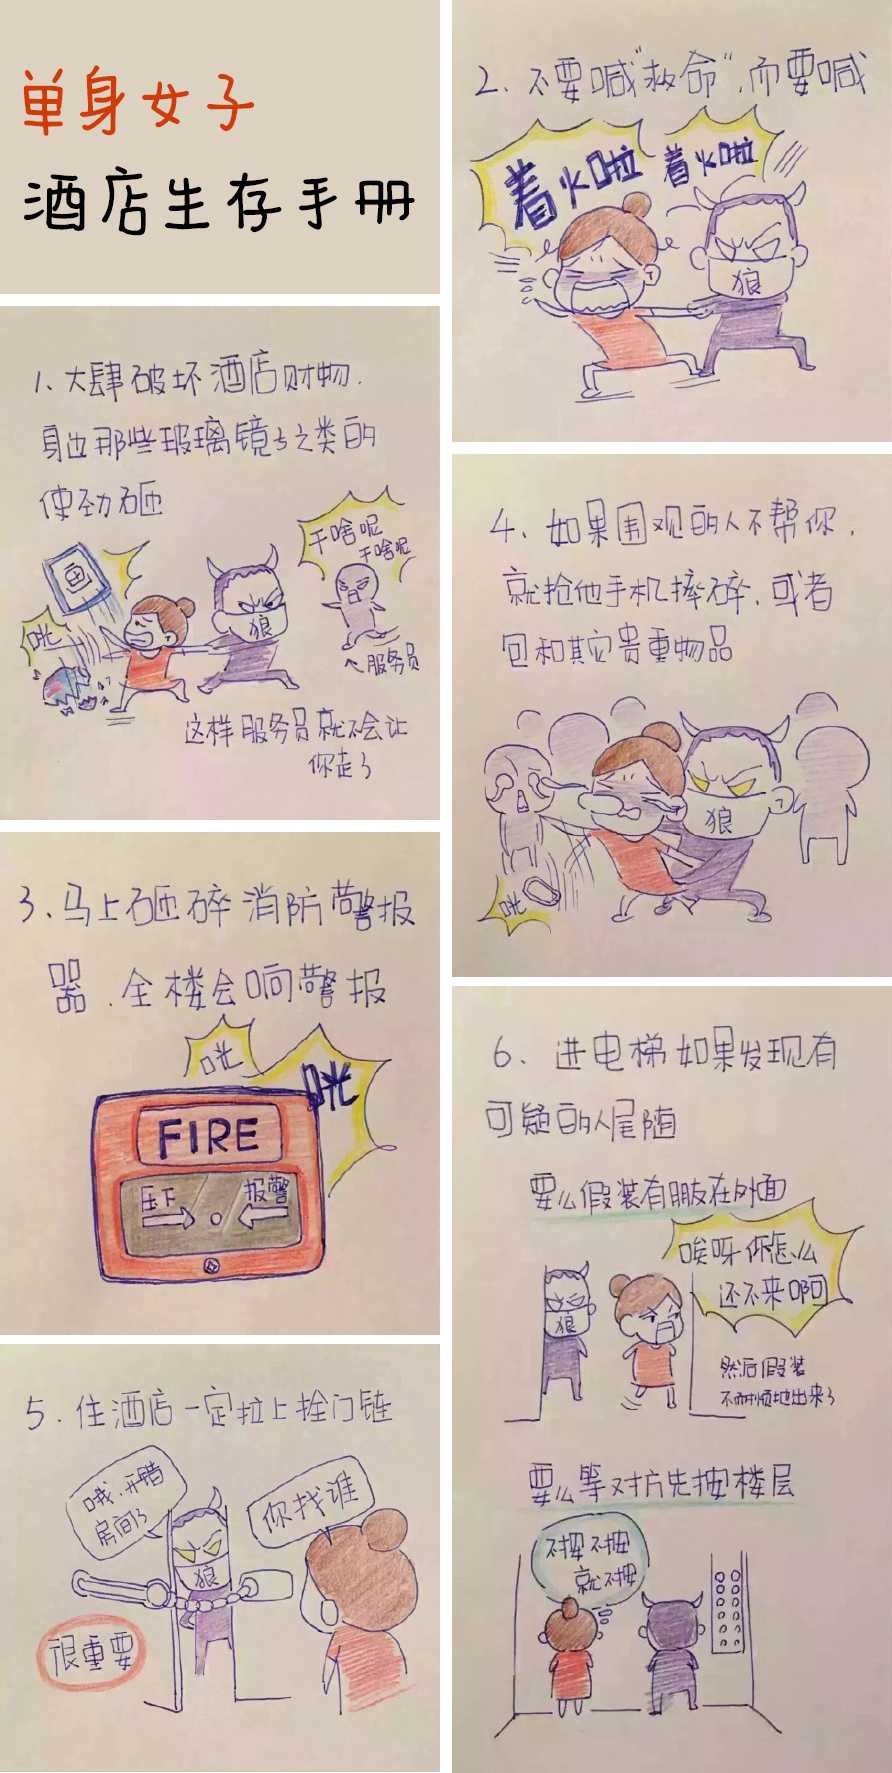 单身女子
酒店生存手册
1、大肆破坏酒店财物.
身边那些玻璃镜子之类的
使劲砸
干啥呢
干啥呢
咣
狼
服务员
这样服务员就不会让
你走了
2、不要喊“救命”,而要喊
着火啦
着火啦
狼
3、马上砸碎消防警报
器.全楼会响警报
咣
咣
FIRE
压下
报警
4、如果围观的人不帮你.
就抢他手机摔碎.或者
包和其它贵重物品
狼
咣
5.住酒店一定拉上拴门链
哦,开错
房间了
你找谁
狼
很重要
6、进电梯如果发现有
可疑的人尾随
要么假装有朋友在外面
唉呀你怎么
还不来啊
狼
然后假装
不耐烦地出来了
要么等对方先按楼层
不按不按
就不按